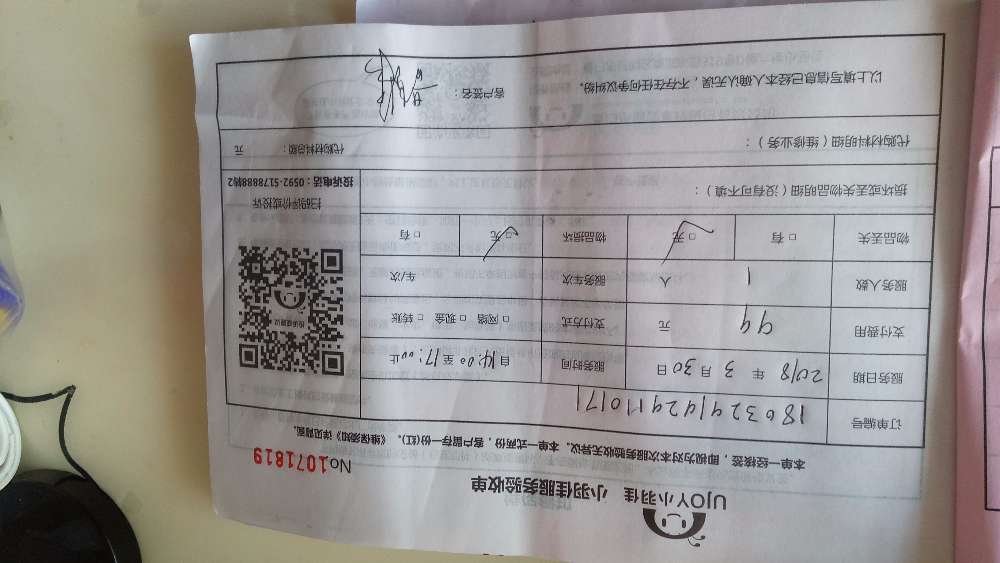 UJOY小羽佳 小羽佳服务验收单
No 1071819
本单一经接签，即视为对本次服务验收无异议。本单一式两份，客户留存一份(红)。《维保须知》详见背面。
订单编号 180324142911017 1
服务日期 2018 年 3 月 30 日 服务时间 自 14:00 至 17:00 止
支付费用 99 元 支付方式 □ 网络 □ 现金 □ 转账
服务人数 1 人 服务车次 车/次
物品丢失 □ 有 □ 无 物品损坏 □ 无 □ 有
损坏或丢失物品明细（没有可不填）：
扫码评价或投诉
投诉电话：0592-5178888转2
代购材料明细（维修业务）：
代购材料总额： 元
以上填写信息已经本人确认无误，不存在任何争议纠纷。
客户签名：